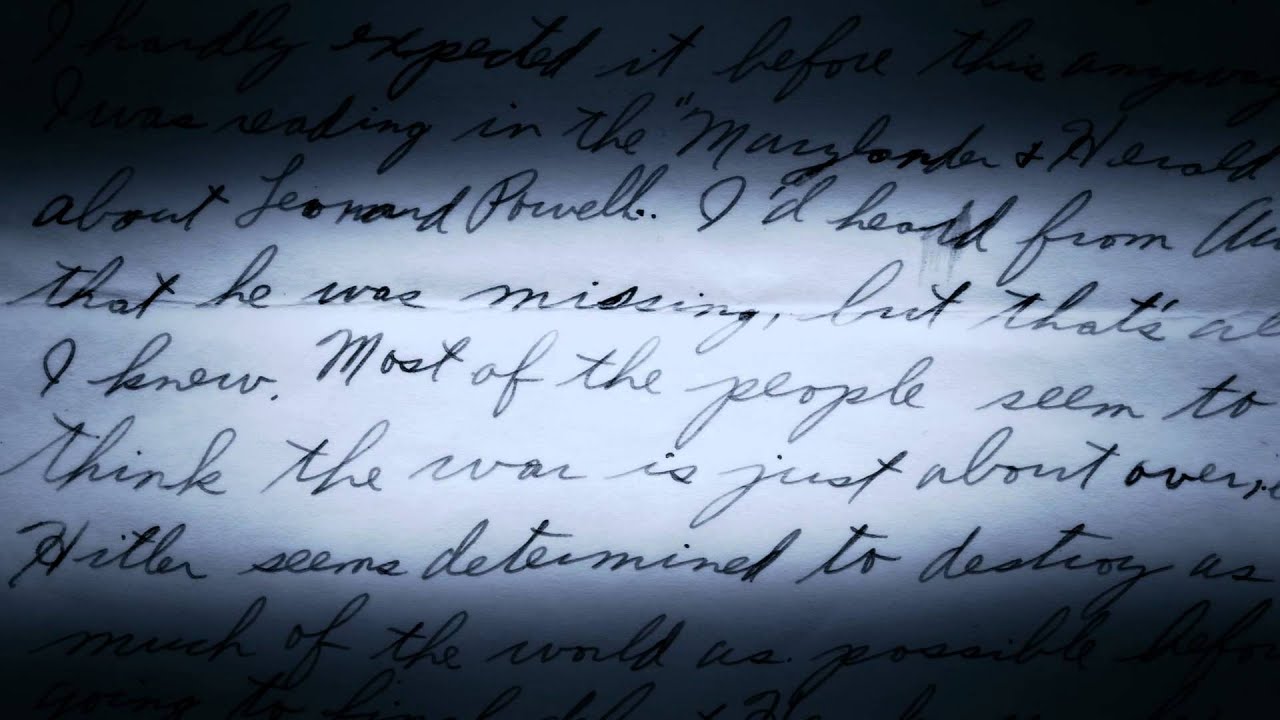 I hardly expected it before this anyway
I was reading in the "Marylander & Herald
about Leonard Powell. I'd heard from
that he was missing, but that's
I knew. Most of the people seem to
think the war is just about over,
Hitler seems determined to destroy as
much of the world as possible
going to